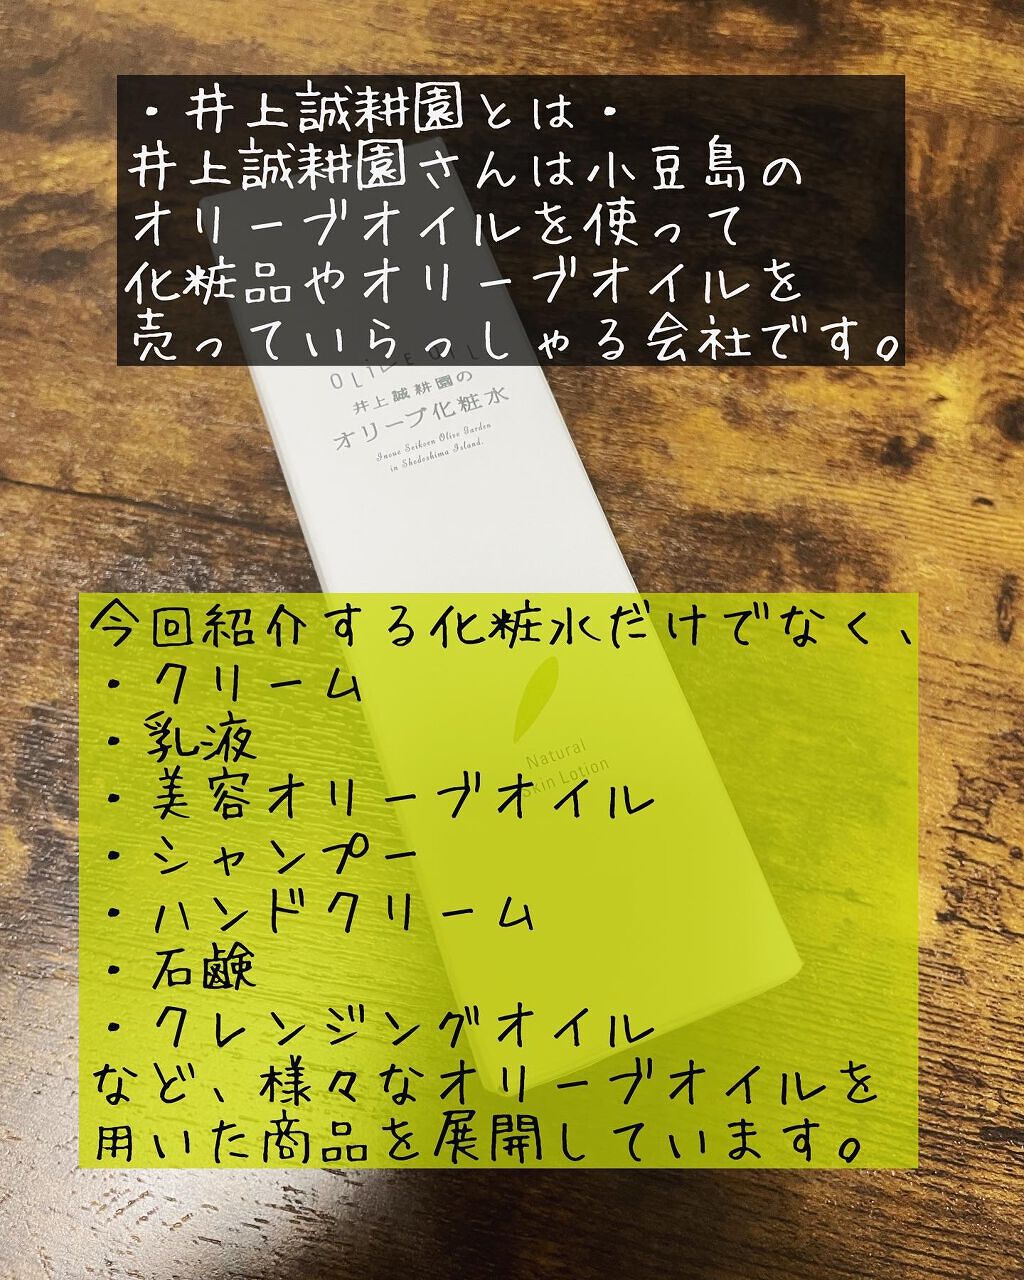 ・井上誠耕園とは・
井上誠耕園さんは小豆島の
オリーブオイルを使って
化粧品やオリーブオイルを
売っていらっしゃる会社です。
OLIVE OIL
井上誠耕園の
オリーブ化粧水
Inoue Seikoen Olive Garden
in Shodoshima Island.
今回紹介する化粧水だけでなく、
・クリーム
・乳液
・美容オリーブオイル
・シャンプー
・ハンドクリーム
・石鹸
・クレンジングオイル
など、様々なオリーブオイルを
用いた商品を展開しています。
Natural
Skin Lotion